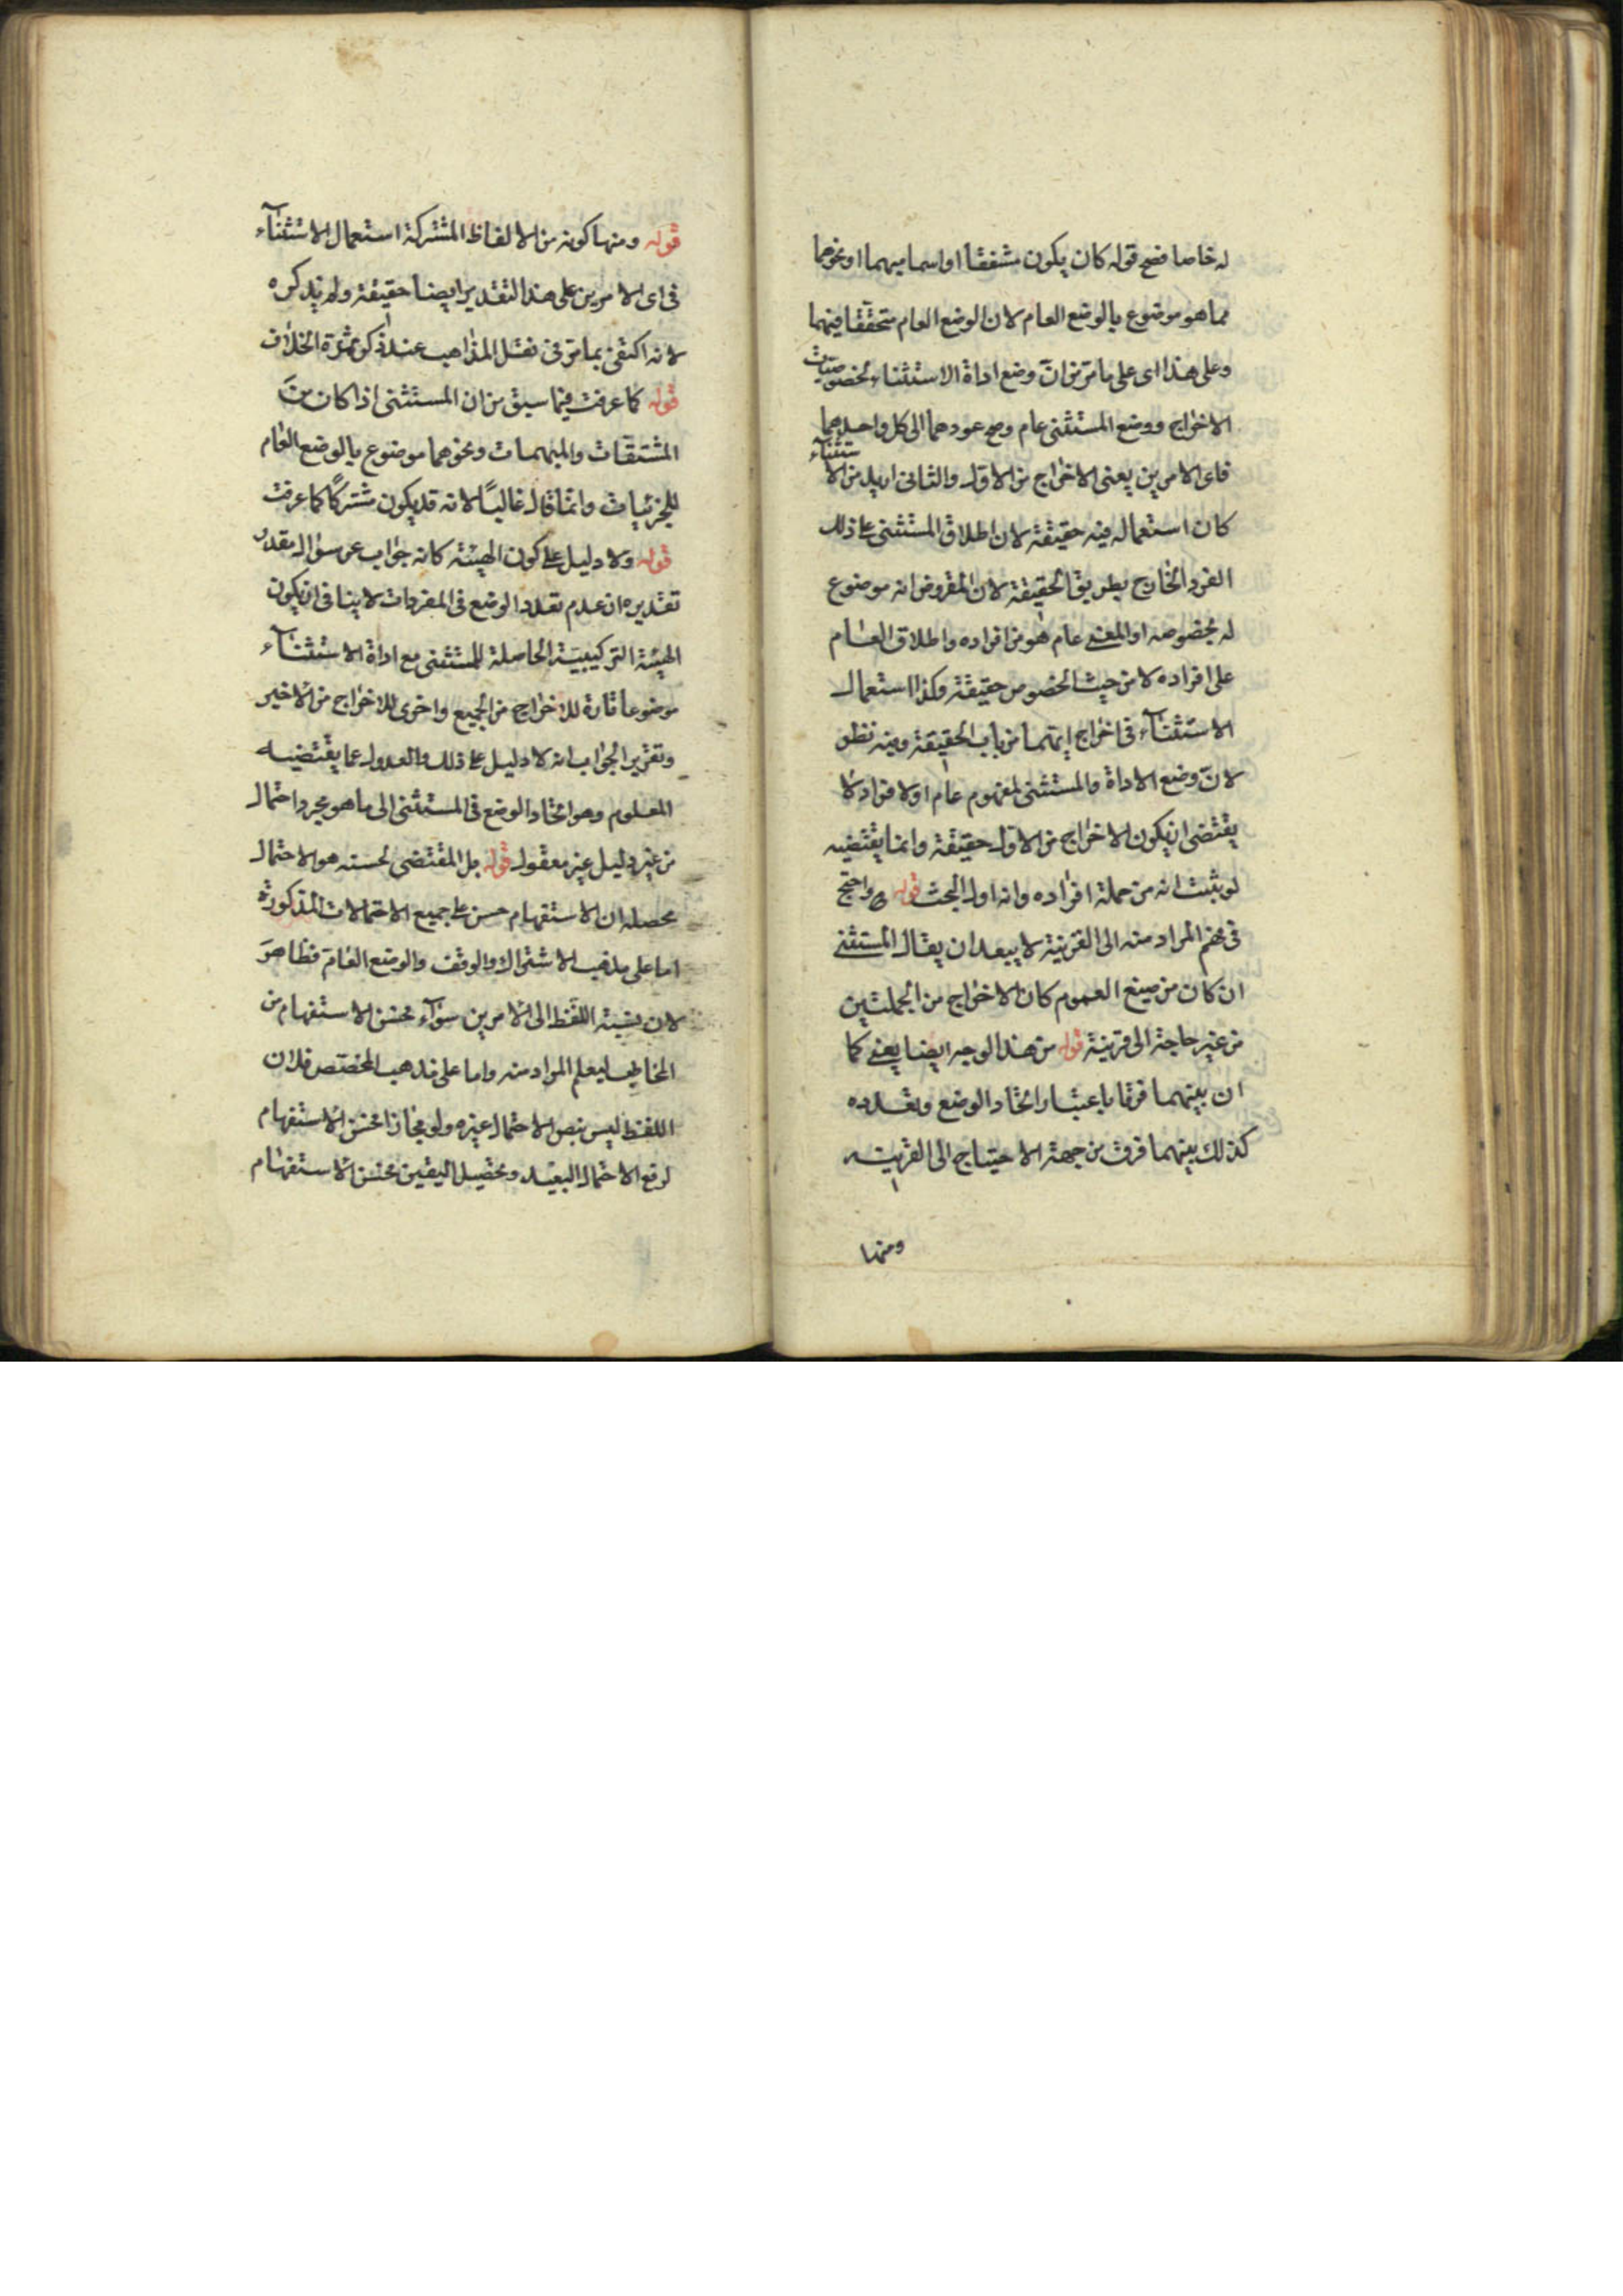 له خاصا فصح قوله كان يكون مشفقا او اسما مبهما او نحوهما
مما هو موضوع بالوضع العام لان الوضع العام متحققا فيهما
وعلى هذا اى على ما مر من انّ وضع اداة الاستثناء لخصوصيات
الاخراج ووضع المستثنى عام وصح عودهما الى كل واحد هما
فاى الامرين يعنى الاخراج من الاول والثانى اريد من الاستثناء
كان استعماله فيه حقيقة لان اطلاق المستثنى على ذلك
الفرد الخارج بطريق الحقيقة لان المفروض انه موضوع
له بخصوصه او المعنى عام هو من افراده واطلاق العام
على افراده لا من حيث الخصوص حقيقة وكذا استعمال
الاستثنآء فى اخراج ايتهما من باب الحقيقة وفيه نظر
لانّ وضع الاداة والمستثنى لمفهوم عام او لافراد لا
يقتضى ان يكون الاخراج من الاول حقيقة وانما يقتضيه
لو ثبت انه من جملة افراده وانه اول البحث قوله واحتج
فى فهم المراد منه الى القرينة لا يبعد ان يقال المستثنى
ان كان من صيغ العموم كان الاخراج من الجملتين
من غير حاجة الى قرينة قوله من هذا الوجه ايضا يعنى كما
ان بينهما فرقا باعتبار اتحاد الوضع وتعدده
كذلك بينهما فرق من جهة الاحتياج الى القرينة
ومنها
قوله ومنها كونه من الالفاظ المشتركة استعمال الاستثنآء
فى اى الامرين على هذا التقدير ايضا حقيقة ولم يذكره
لانه اكتفى بما مرّ فى نقل المذاهب عند ذكر ثمرة الخلاف
قوله كما عرفت فيما سبق من ان المستثنى اذا كان منَ
المشتقات والمبهمات ونحوهما موضوع بالوضع العام
للجزئيات وانما قال غالبًا لانه قد يكون مشتركًا كما عرفت
قوله ولا دليل على كون الهيئة كانه جواب عن سؤال مقدر
تقديره ان عدم تعدد الوضع فى المفردات لا ينافى ان يكون
الهيئة التركيبيّة الحاصلة للمستثنى مع اداة الاستثنآء
موضوعا تارة للاخراج من الجميع واخرى للاخراج من الاخير
وتقرير الجواب انه لا دليل على ذلك والعدول عما يقتضيه
المعلوم وهو اتحاد الوضع فى المستثنى الى ما هو مجرد احتمال
من غير دليل غير معقول قوله بل المقتضى لحسنه هو الاحتمال
محصله ان الاستفهام حسن على جميع الاحتمالات المذكورة
اما على مذهب الاشتراك والوقف والوضع العام فظاهرَ
لان نسبة اللفظ الى الامرين سوآء فحسن الاستفهام من
المخاطب ليعلم المراد منه واما على مذهب المختص فلان
اللفظ ليس بنص لاحتمال غيره ولو مجازا فحسن الاستفهام
لرفع الاحتمال البعيد وتحصيل اليقين فحسن الاستفهام